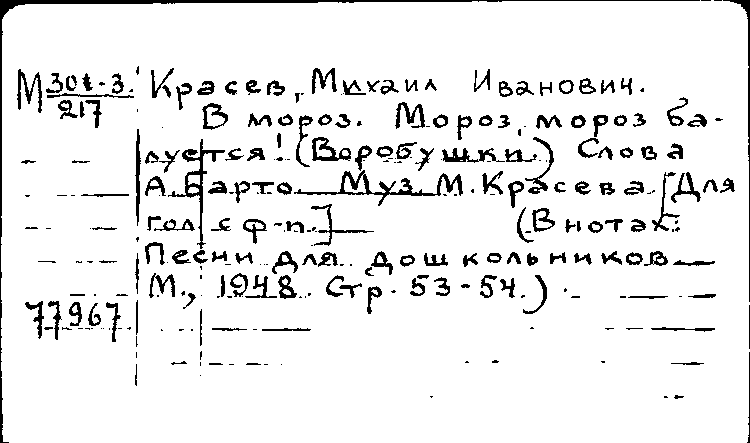 М 301-3. Красев, Михаил Иванович.
217 В мороз. Мороз, мороз ба-
луется! (Воробушки.) Слова
А.Барто. Муз. М.Красева. [Для
гол. с ф-п.] (В нотах:
Песни для дошкольников
М., 1948. Стр. 53-54.).
77967